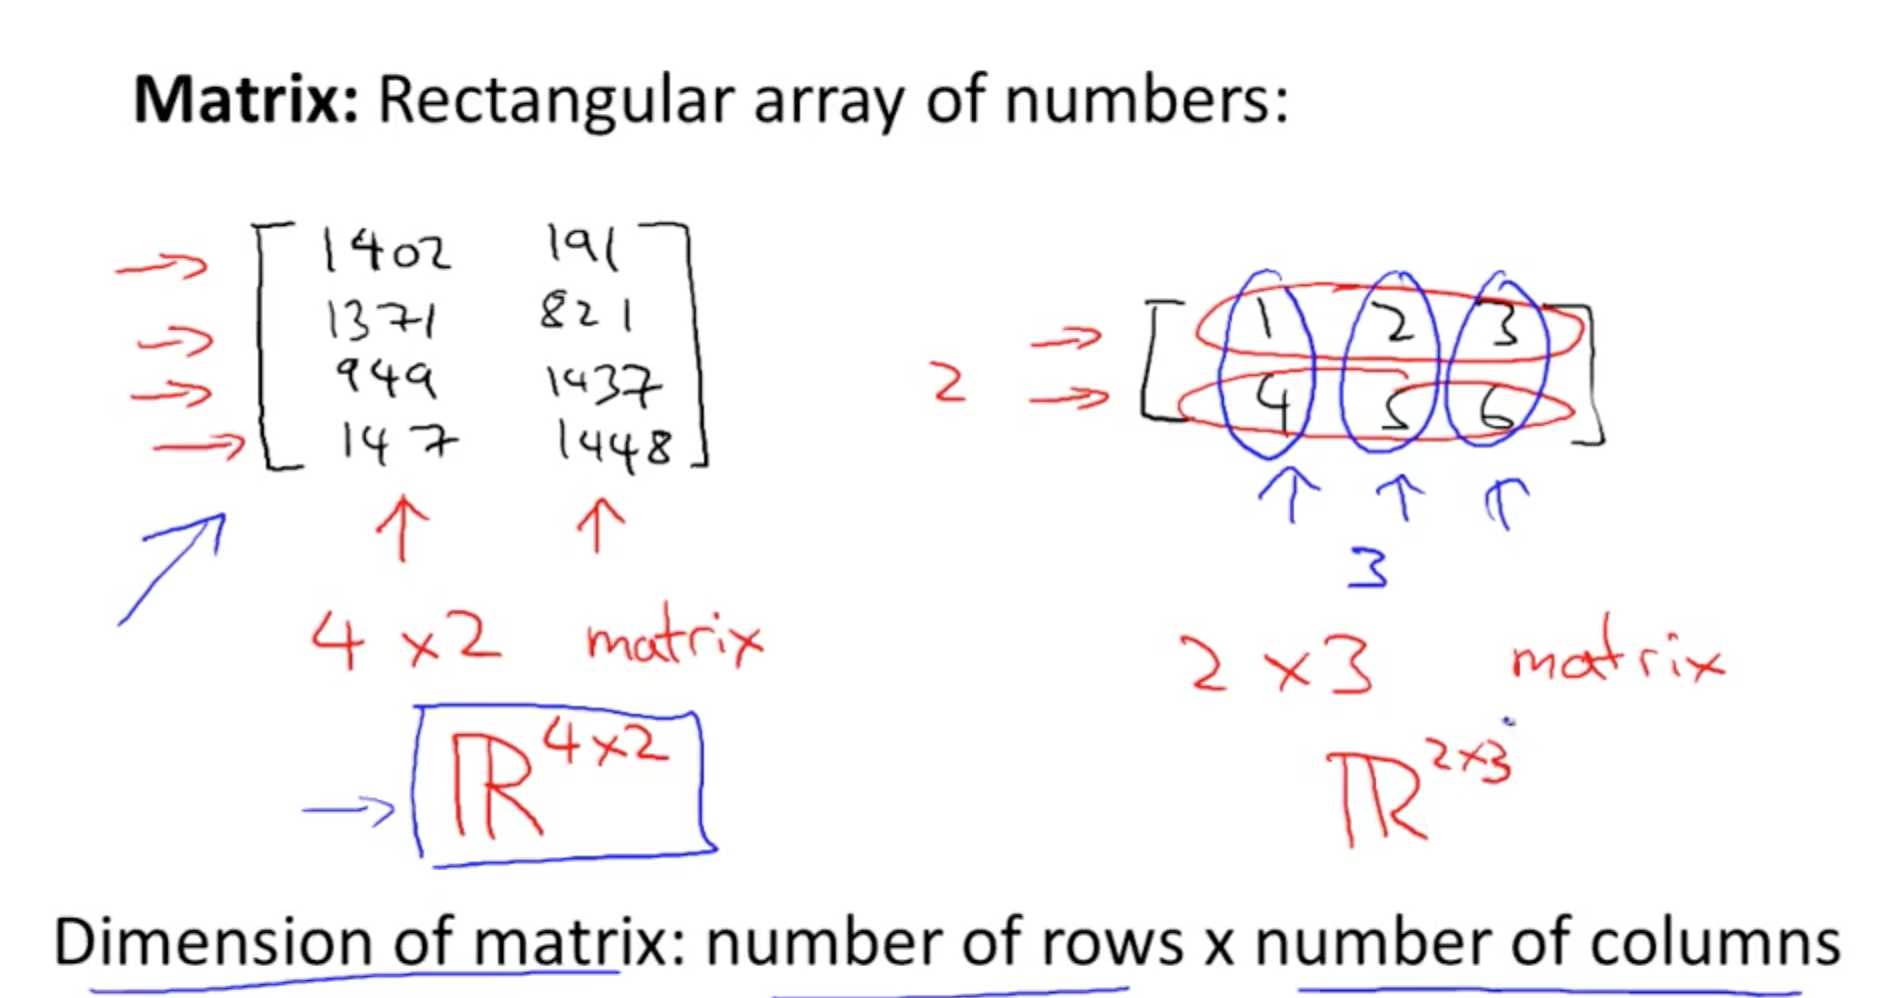 Matrix: Rectangular array of numbers:
1402 191
1371 821
949 1437
147 1448
4 x 2 matrix
ℝ^4x2
1 2 3
2
4 5 6
3
2 x 3 matrix
ℝ^2x3
Dimension of matrix: number of rows x number of columns